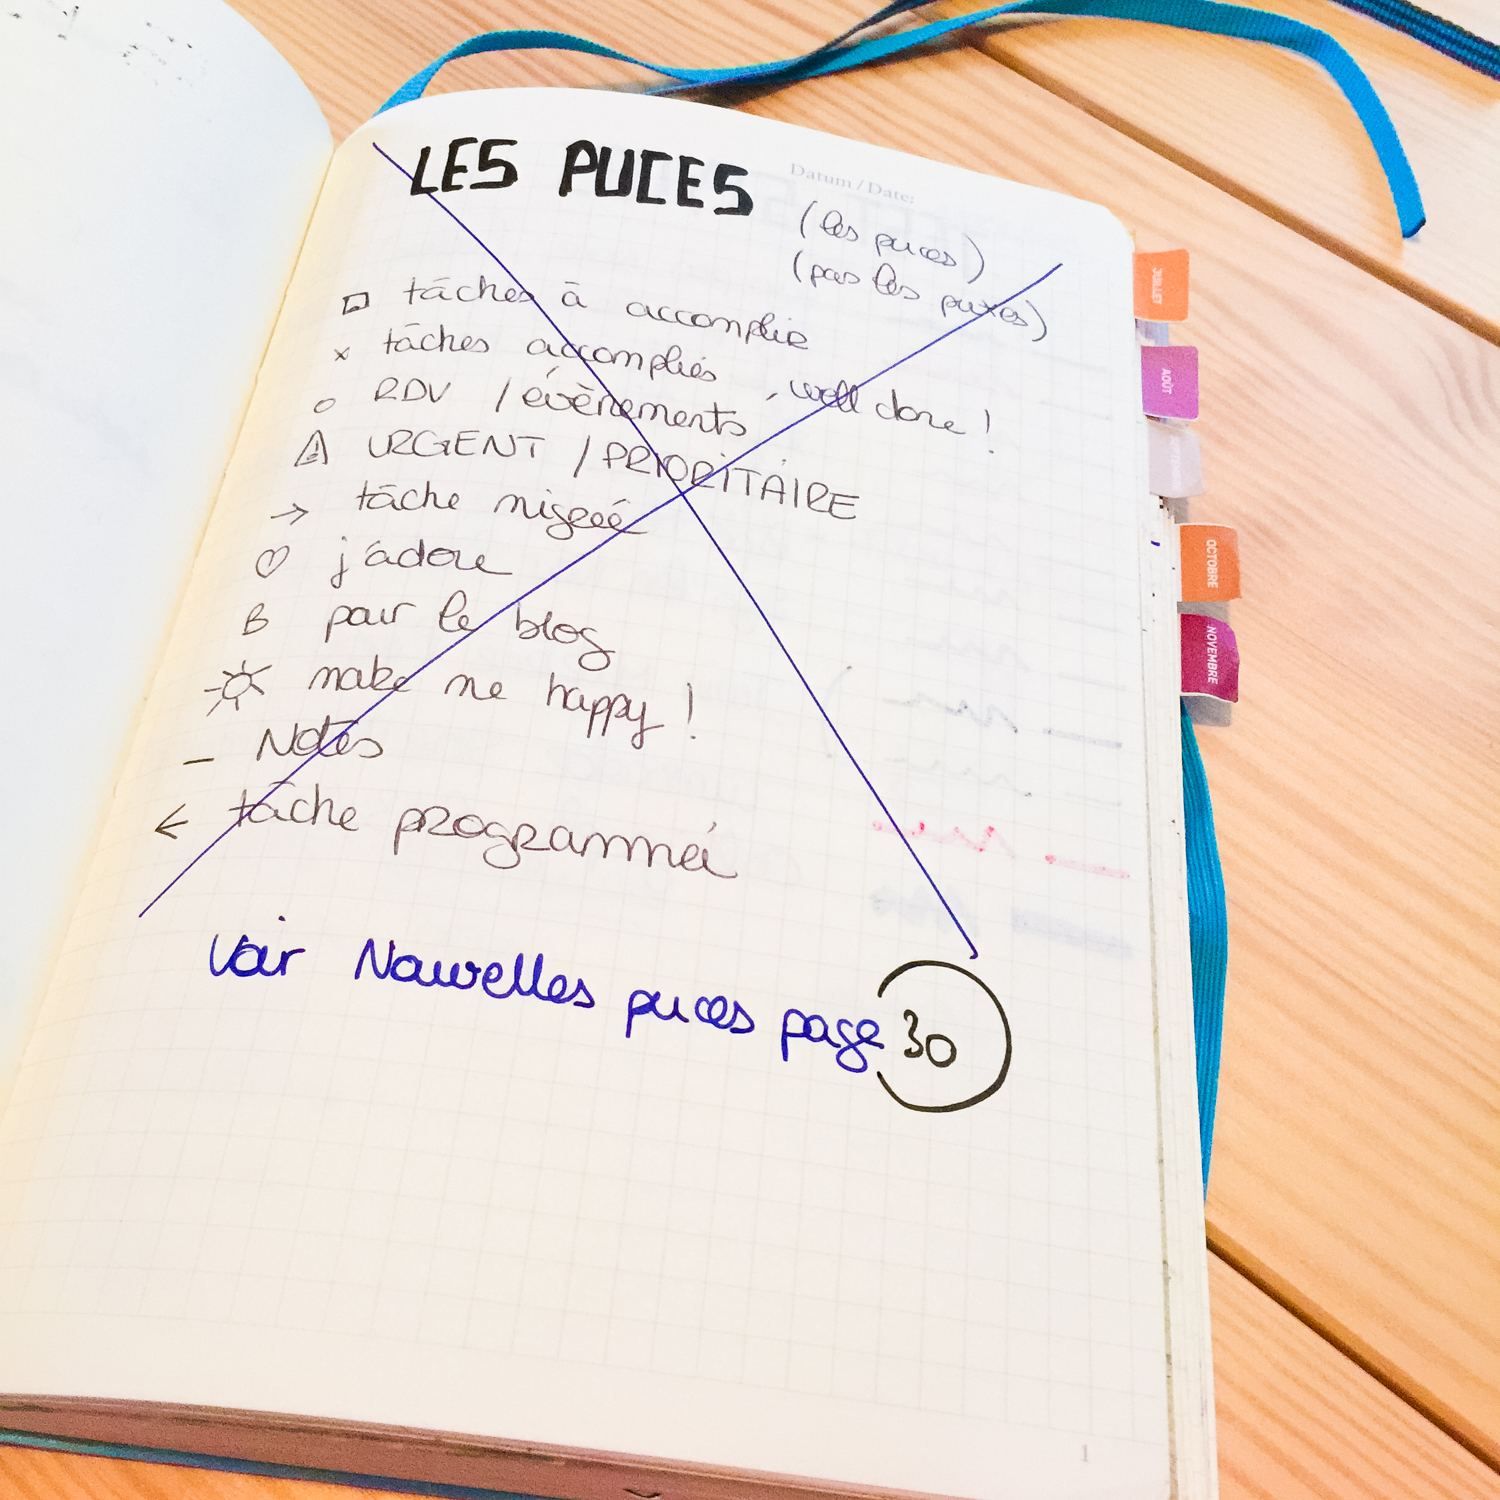 LES PUCES
Datum / Date:
(les puces)
(pas les puxes)
□ tâches à accomplir
x tâches accomplies, well done !
o RDV / évènements
⚠ URGENT / PRIORITAIRE
→ tâche migréé
♡ j'adore
B pour le blog
☼ make me happy !
– Notes
← tâche programméé
Voir Nouvelles puces page 30
JUILLET
AOÛT
OCTOBRE
NOVEMBRE
1